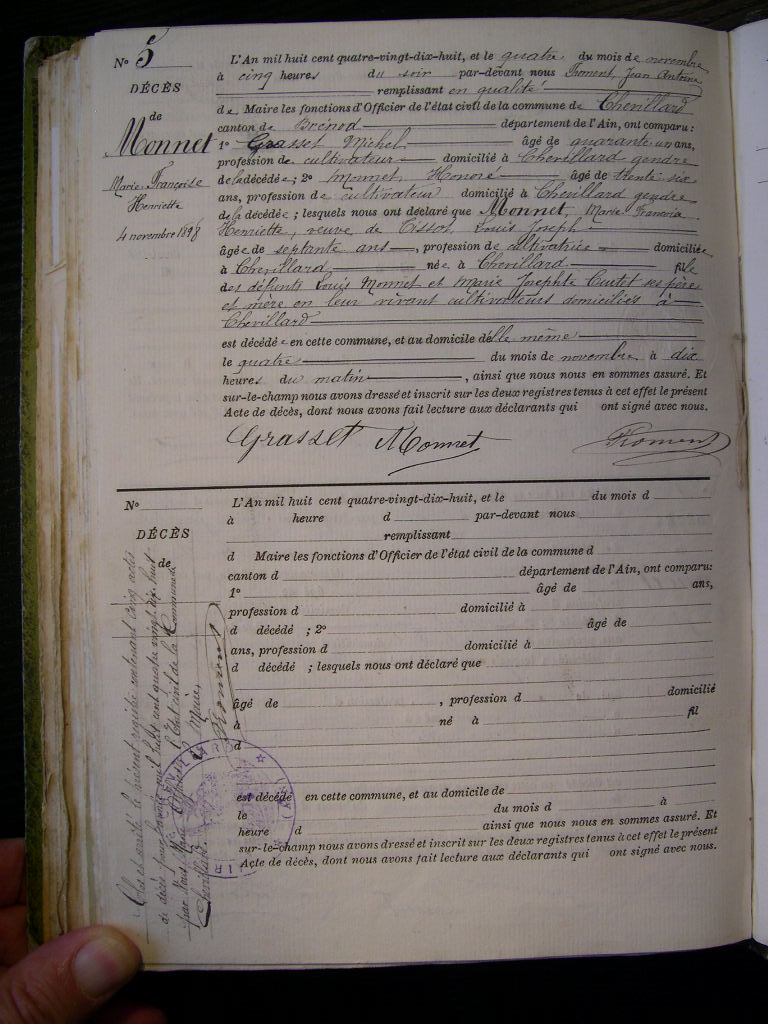 N° 5
DÉCÈS
de
Monnet
Marie Françoise
Henriette
4 novembre 1898
L'An mil huit cent quatre-vingt-dix-huit, et le quatre du mois de novembre
à cinq heures du soir par-devant nous Froment, Jean Antoine
remplissant en qualité
de Maire les fonctions d'Officier de l'état civil de la commune de Chevillard
canton de Brénod département de l'Ain, ont comparu:
1° Grasset Michel âgé de quarante un ans,
profession de cultivateur domicilié à Chevillard gendre
de la décédée; 2° Monnet, Honoré âgé de trente-six
ans, profession de cultivateur domicilié à Chevillard gendre
de la décédée; lesquels nous ont déclaré que Monnet, Marie Françoise
Henriette, veuve de Cissot, Louis Joseph
âgée de septante ans, profession de cultivatrice domiciliée
à Chevillard née à Chevillard fille
des défunts Louis Monnet et Marie Josephte Curtet ses père
et mère en leur vivant cultivateurs domiciliés à
Chevillard
est décédée en cette commune, et au domicile d'elle même
le quatre du mois de novembre à dix
heures du matin, ainsi que nous nous en sommes assuré. Et
sur-le-champ nous avons dressé et inscrit sur les deux registres tenus à cet effet le présent
Acte de décès, dont nous avons fait lecture aux déclarants qui ont signé avec nous.
Grasset Monnet Froment
N°
DÉCÈS
de
L'An mil huit cent quatre-vingt-dix-huit, et le du mois d
à heure d par-devant nous
remplissant
d Maire les fonctions d'Officier de l'état civil de la commune d
canton d département de l'Ain, ont comparu:
1° âgé de ans,
profession d domicilié à
d décédé ; 2° âgé de
ans, profession d domicilié à
d décédé ; lesquels nous ont déclaré que
âgé de , profession d domicilié
à né à fil
d
est décédé en cette commune, et au domicile de
le du mois d à
heure d ainsi que nous nous en sommes assuré. Et
sur-le-champ nous avons dressé et inscrit sur les deux registres tenus à cet effet le présent
Acte de décès, dont nous avons fait lecture aux déclarants qui ont signé avec nous.
Clos et arrêté le présent registre contenant cinq actes
de décès pour l'année mil huit cent quatre vingt dix huit
par Nous Maire Officier de l'Etat civil de la Commune de
Chevillard
Maire,
Froment